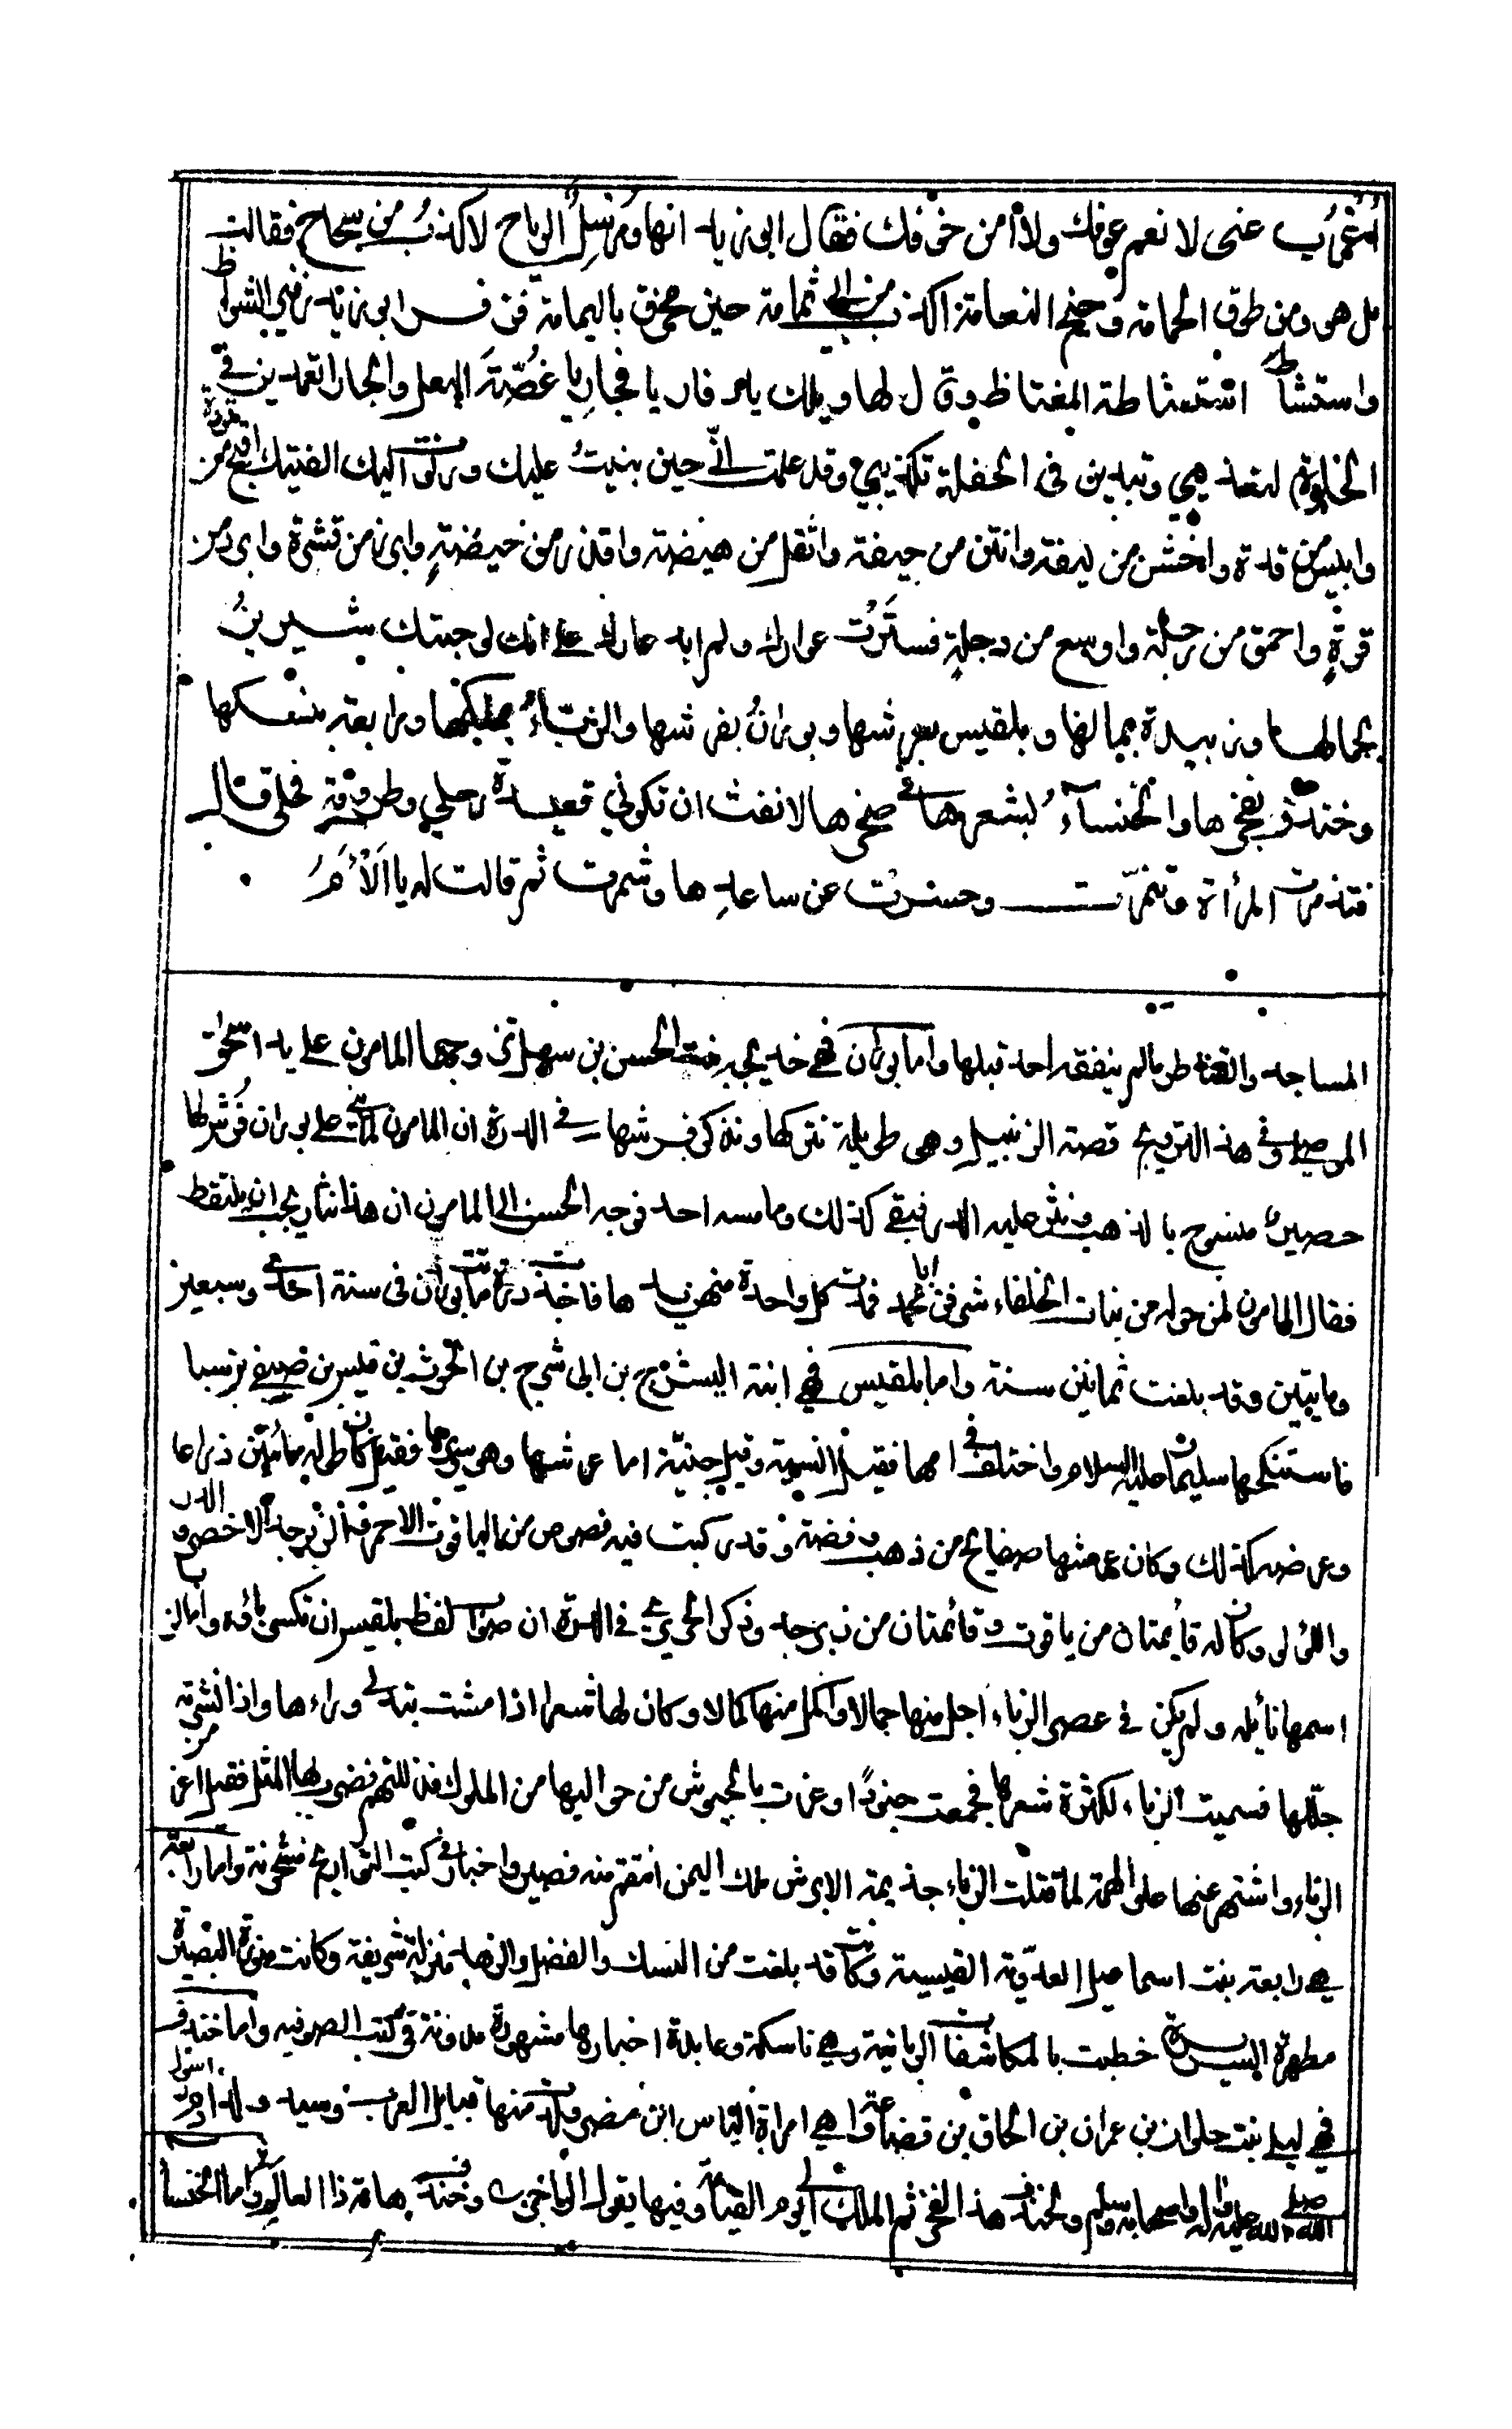 اغرب عنى لا نعم عوفك ولا أمن خوفك فقال ابو زيد انها ومرسل الرياح لاكذب من سجاح فقالت
بل هو ومن طوق الحمامة وجنح النعامة اكذب من ابي ثمامة حين مخرق باليمامة فزفر ابو زيد زفير الشواظ
واستشاط استشاطة المغتاظ وقال لها ويلك يا دفار يا فجار يا غصة البعل والجار اتعمدين في
الخلوة لتعذيبي وتبدين في الحفلة تكذيبي وقد علمت اني حين بنيت عليك ورنوت اليك الفيتك اقبح من قردة
وايبس من قدة واخشن من ليفة وانتن من جيفة واثقل من هيضة واقذر من حيضة وابرز من قشرة وابرد من
قرة واحمق من رجلة واوسع من دجلة فسترت عوارك ولم ابد عارك على انك لو حبتك شيرين
بجمالها وزبيدة بمالها وبلقيس بعرشها وبوران بفرشها والزباء بملكها ورابعة بنسكها
وخندف بفخرها والخنساء بشعرها في صخرها لانفت ان تكوني قعيدة رحلي وطروقة فحلي قال
فتذمرت المرأة وتنمرت وحسرت عن ساعدها وشمرت ثم قالت له يا الأم
المساجد والقناطر ما لم ينفقه احد قبلها واما بوران فهي خديجة بنت الحسن بن سهل تزوجها المامون على يد اسحق
الموصلي وفي هذا التزويج قصة الزنبيل وهى طويلة نتركها ونذكر فرشها في الدرة ان المامون لما بنى على بوران فرش لها
حصير منسوج بالذهب ونثر عليه الدر فبقي كذلك وما مسه احد فوجه الحسن الى المامون ان هذا نثار يجب ان يلتقط
فقال المامون لمن حوله من بنات الخلفاء شرفن ابا محمد فمدت كل واحدة منهن يدها فاخذت درة ماتت بوران فى سنة احدى وسبعين
ومايتين وقد بلغت ثمانين سنة واما بلقيس فهي ابنة اليشرح بن ابى شرح بن الحرث بن قيس بن صيفي بن سبا
فاستنكحها سليمان عليه السلام واختلف في امها فقيل انسية وقيل جنية اما عرشها وهو سريرها فقيل كان طوله ثمانين ذراعا
وعرضه كذلك وكان عرشها صفايح من ذهب وفضة وقد ركبت فيه فصوص من الياقوت الاحمر والزبرجد الاخضر والدر
واللؤلو وكان له قايمتان من ياقوت وقائمتان من زبرجد وذكر الحريري في الدرة ان صواب لفظ بلقيس ان تكسر باؤه واما الزبا
اسمها نايله ولم يكن في عصر الزباء اجل منها جمالا واكمل منها كمالا وكان لها شعر اذا مشت تدلى وراءها واذا نشرته
جللها فسميت الزباء لكثرة شعرها فجمعت جنودا وغزت بالجيوش من حواليها من الملوك فذللتهم فضرب بها المثل فقيل اعز من
الزباء واشتهر عنها علو الهمة لما قتلت الزباء جذيمة الابرش ملك اليمن انتقم منه قصير واخبارها في كتب التواريخ مشحونة واما رابعة
هي رابعة بنت اسماعيل العدوية القيسية وكانت قد بلغت من النسك والفضل والزهد منزلة شريفة وكانت منورة البصيرة
مطهرة السريرة خطبت بالمكاشفات الربانية وهي ناسكة وعابدة اخبارها مشهورة مدونة في كتب الصوفيه واما خندف
فهي ليلى بنت حلوان بن عمران بن الحاف بن قضاعة وهي امراة الياس ابن مضر ولدت منها قبايل العرب وسيد ولد ادم رسول
الله صلى الله عليه وآله واصحابه وسلم ولخندف هذا الفخر ثم الملك الى يوم القيامة وفيها يقول الراجز وخندف هامة هذا العالم واما الخنساء